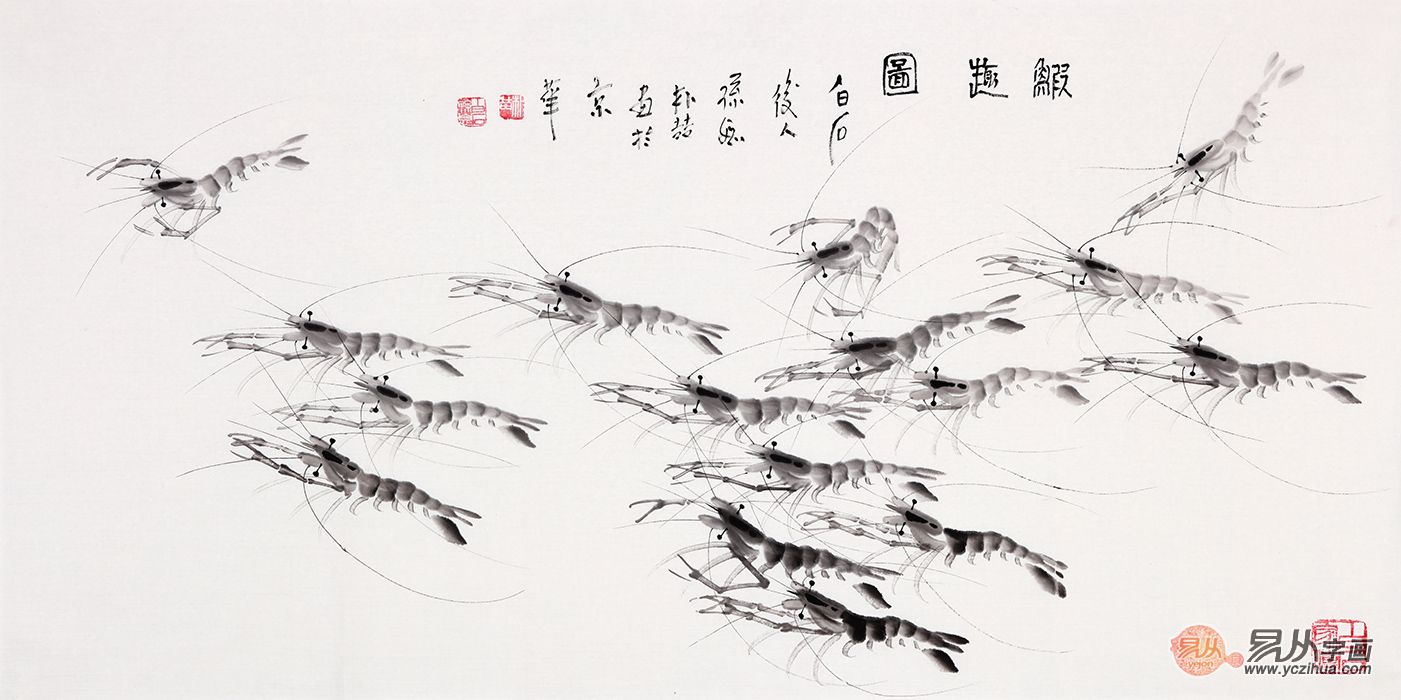 鰕趣圖
白石
後人
孫媳
畫於
京
華
易从
yejon
易从字画
www.yczihua.com